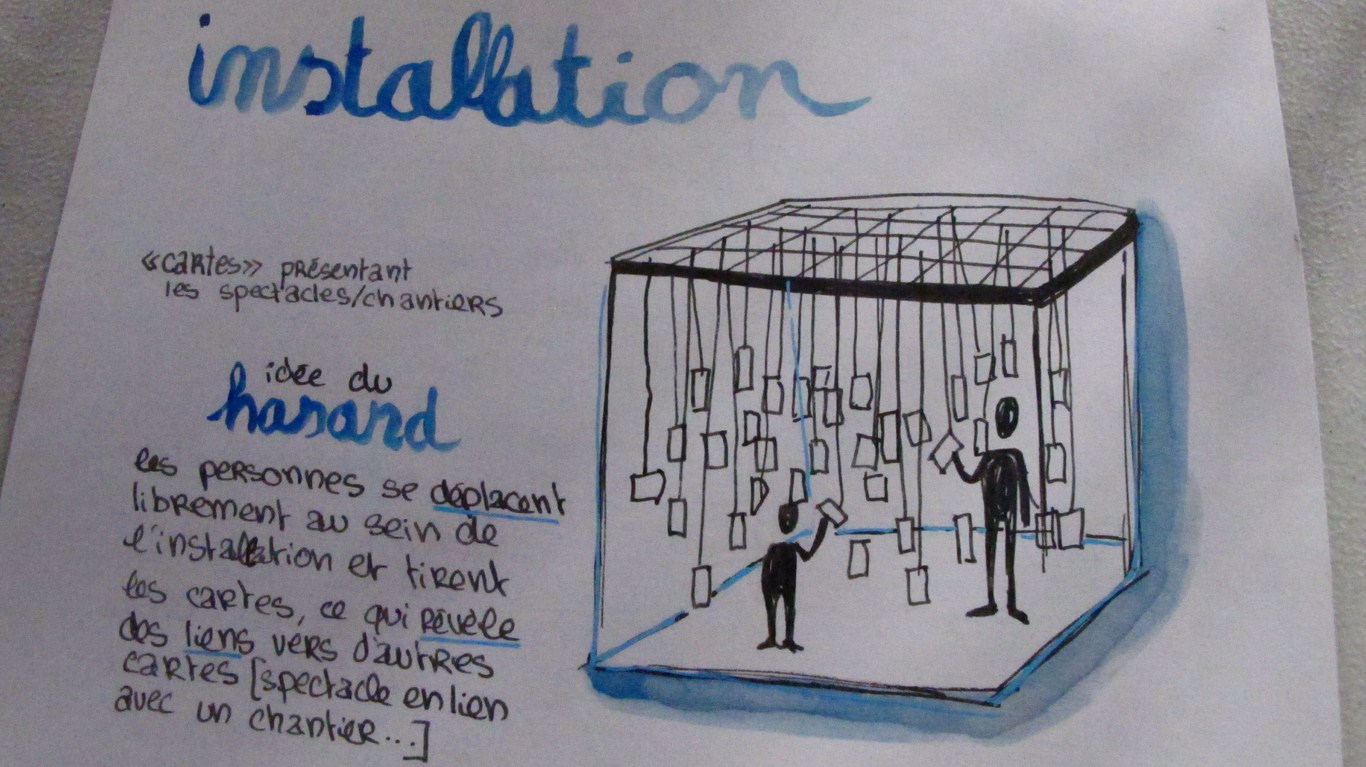 installation
«cartes» présentant
les spectacles/chantiers
idée du
hasard
les personnes se déplacent
librement au sein de
l'installation et tirent
les cartes, ce qui révèle
des liens vers d'autres
cartes [spectacle en lien
avec un chantier...]